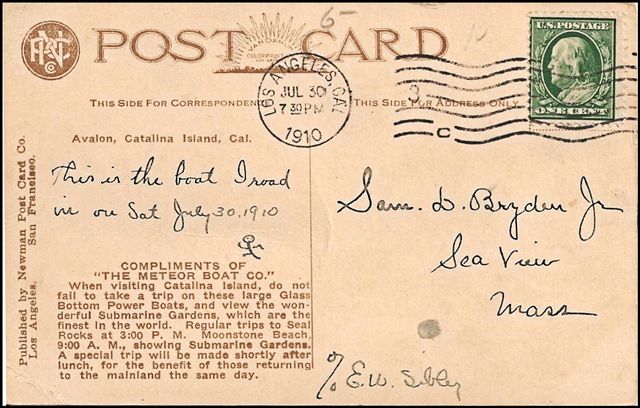 5-
POST CARD
U.S. POSTAGE
ONE CENT
LOS ANGELES, CAL.
JUL 30
7 30 PM
1910
C
THIS SIDE FOR CORRESPONDEN
THIS SIDE FOR ADDRESS ONLY
Avalon, Catalina Island, Cal.
This is the boat I road
in on Sat July 30, 1910
COMPLIMENTS OF
"THE METEOR BOAT CO."
When visiting Catalina Island, do not
fail to take a trip on these large Glass
Bottom Power Boats, and view the won-
derful Submarine Gardens, which are the
finest in the world. Regular trips to Seal
Rocks at 3:00 P. M. Moonstone Beach,
9:00 A. M., showing Submarine Gardens.
A special trip will be made shortly after
lunch, for the benefit of those returning
to the mainland the same day.
Published by Newman Post Card Co.
Los Angeles. San Francisco.
Sam. D. Bryden Jr
Sea View
Mass
% E.W. Sibley